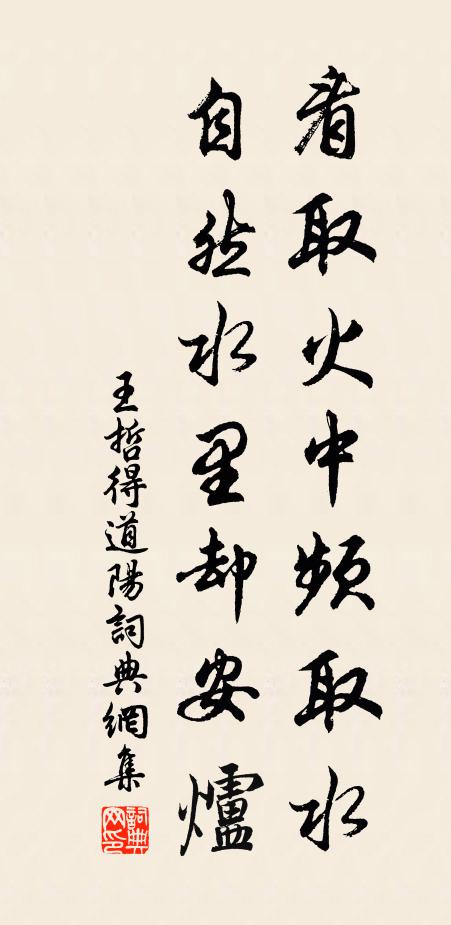 看取火中頻取水
自然水里却安爐
王哲得道陽詞典網集
詞典网印